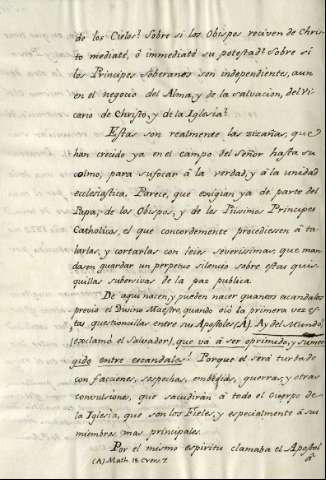 de los Cielos? Sobre si los Obispos reciven de Chris-
to mediatè, ò immediatè su potestad? Sobre si
los Principes Soberanos son independientes, aun
en el negocio del Alma, y de la salvacion, del Vi-
cario de Christo, y de la Iglesia?
Estas son realmente las zizañas, que
han crecido ya en el campo del Señor hasta su
colmo, para sufocar à la verdad, y à la unidad
ecclesiastica. Parece, que exigian ya de parte del
Papa, de los Obispos, y de los Piisimos Principes
Catholicos, el que concordemente procediesen à ta-
larlas, y cortarlas con leies severissimas, que man-
dasen guardar un perpetuo silencio sobre estas quis-
quillas subersivas de la paz publica.
De aqui nacen, y pueden nacer quantos escandalos
previò el Divino Maestro, quando oiò la primera vez es-
tas questioncillas entre sus Apostoles (A). Ay del Mundo!
(exclamò el Salvador), que và à ser oprimido, y sumer-
gido entre escandalos! Porque èl serà turbado
con facciones, sospechas, embidias, guerras, y otras
convulsiones, que sacudiràn à todo el Cuerpo de
la Iglesia, que son los Fieles, y especialmente à sus
miembros mas principales.
Por el mismo espiritu clamaba el Apostol
(A) Math. 18. Cvers. 7.